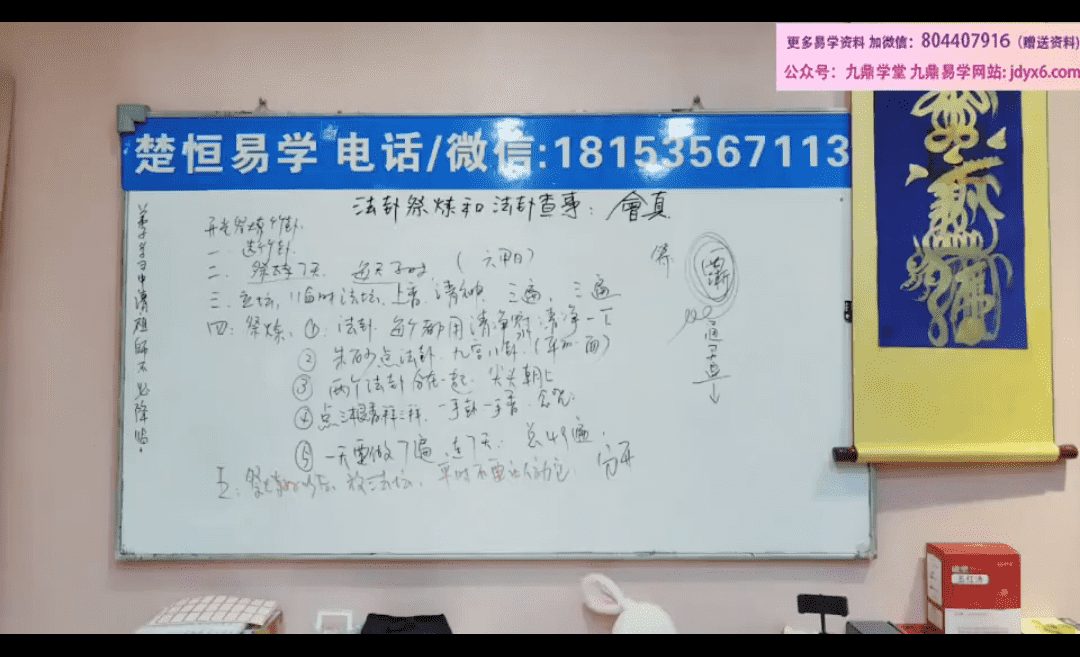 更多易学资料 加微信：804407916（赠送资料)
公众号：九鼎学堂 九鼎易学网站: jdyx6.com
楚恒易学 电话/微信:18153567113
法卦祭炼和法卦查事：會真
弟子学习中请祖师不必降临。
开光祭炼竹卦
一、选竹卦
二、祭炼7天，每天子时（六甲日）
三、立坛，临时法坛、上香、请神，三遍，三遍
四：祭炼、①：法卦，每个都用清净符清净一下
② 朱砂点法卦，九宫八卦，
③ 两个法卦合在一起，尖头朝上
④点三根香拜三拜，一手卦一手香，念咒
⑤ 一天要做7遍，连7天，总49遍，
五：祭炼好以后，放法坛，平时不要让人动它，分开
符
渐